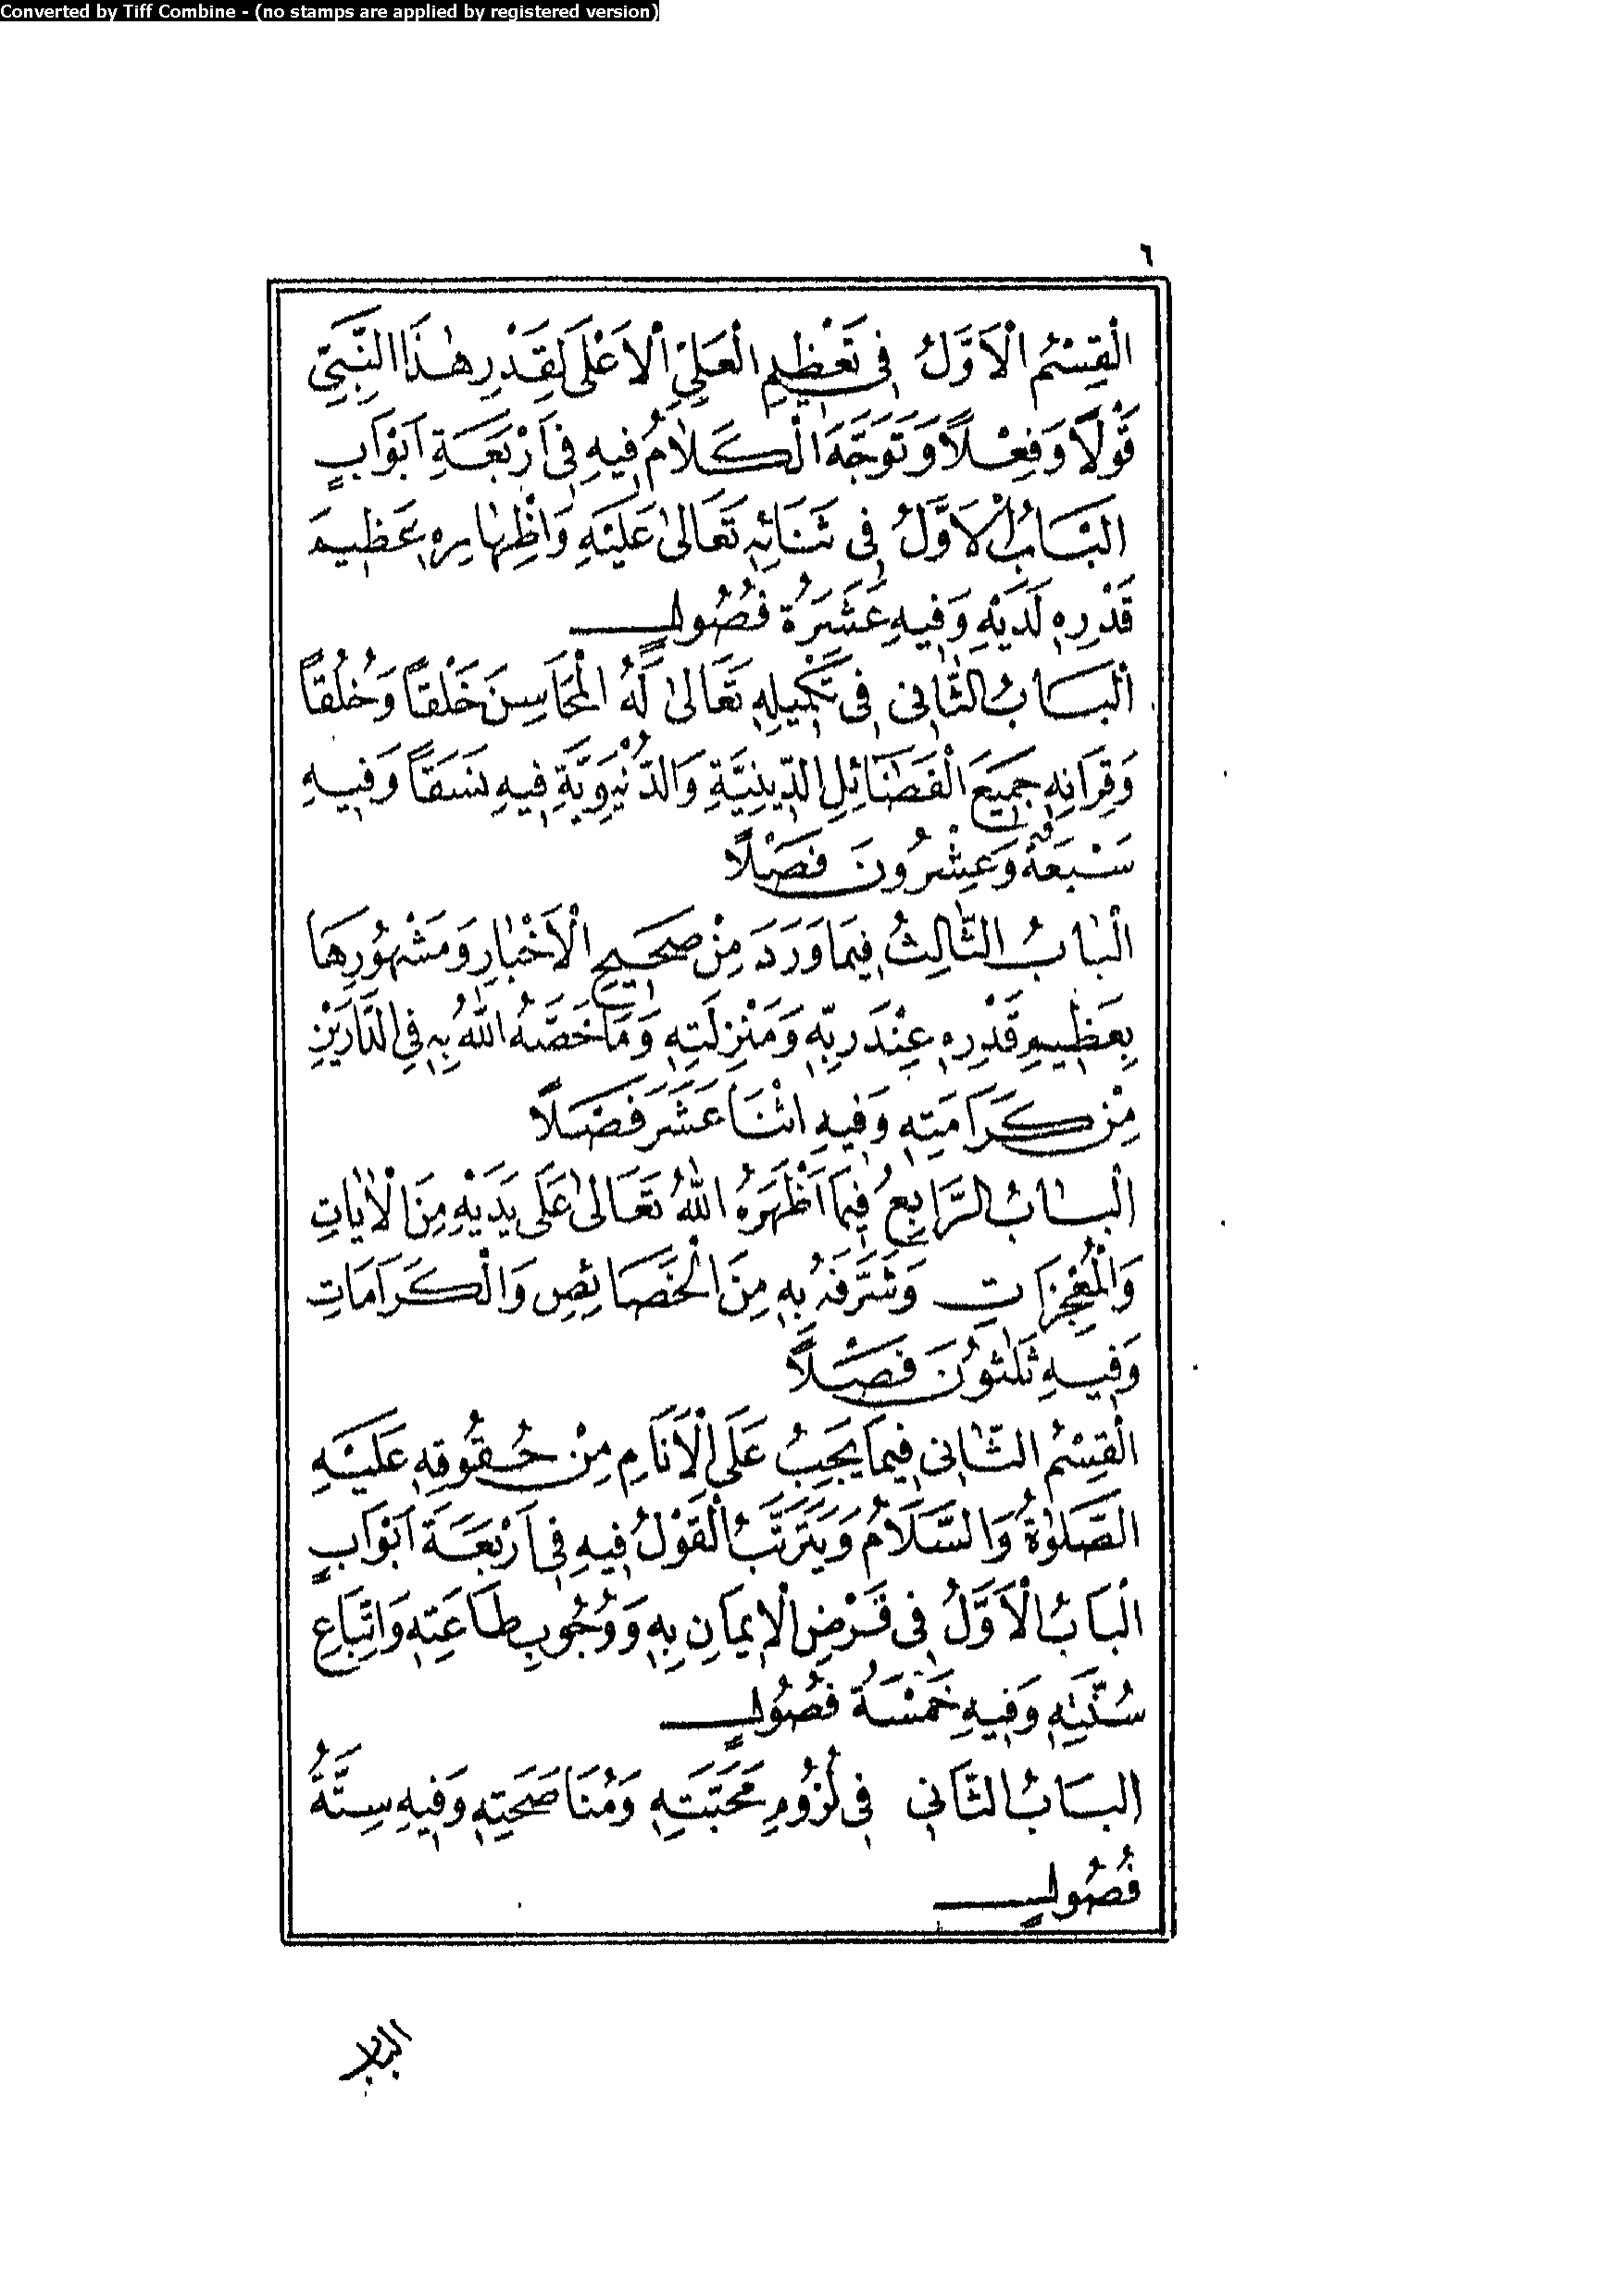 Converted by Tiff Combine - (no stamps are applied by registered version)
٦
الْقِسْمُ الْاَوَّلُ فِى تَعْظِيمِ الْعَلِىِّ الْاَعْلٰى لِقَدْرِ هٰذَا النَّبِىِّ
قَوْلًا وَفِعْلًا وَتَوَجَّهَ الْكَلَامُ فِيهِ فِى اَرْبَعَةِ اَبْوَابٍ
اَلْبَابُ الْاَوَّلُ فِى ثَنَائِهِ تَعَالٰى عَلَيْهِ وَاِظْهَارِهِ عَظِيمَ
قَدْرِهِ لَدَيْهِ وَفِيهِ عَشَرَةُ فُصُولٍ
اَلْبَابُ الثَّانِى فِى تَكْمِيلِهِ تَعَالٰى لَهُ الْمَحَاسِنَ خَلْقًا وَخُلُقًا
وَقِرَانِهِ جَمِيعَ الْفَضَائِلِ الدِّينِيَّةِ وَالدُّنْيَوِيَّةِ فِيهِ نَسَقًا وَفِيهِ
سَبْعَةٌ وَعِشْرُونَ فَصْلًا
اَلْبَابُ الثَّالِثُ فِيمَا وَرَدَ مِنْ صَحِيحِ الْاَخْبَارِ وَمَشْهُورِهَا
بِعَظِيمِ قَدْرِهِ عِنْدَ رَبِّهِ وَمَنْزِلَتِهِ وَمَا خَصَّهُ اللّٰهُ بِهِ فِى الدَّارَيْنِ
مِنْ كَرَامَتِهِ وَفِيهِ اثْنَا عَشَرَ فَصْلًا
اَلْبَابُ الرَّابِعُ فِيمَا اَظْهَرَهُ اللّٰهُ تَعَالٰى عَلٰى يَدَيْهِ مِنَ الْاٰيَاتِ
وَالْمُعْجِزَاتِ وَشَرَّفَهُ بِهِ مِنَ الْخَصَائِصِ وَالْكَرَامَاتِ
وَفِيهِ ثَلٰثُونَ فَصْلًا
اَلْقِسْمُ الثَّانِى فِيمَا يَجِبُ عَلَى الْاَنَامِ مِنْ حُقُوقِهِ عَلَيْهِ
الصَّلٰوةُ وَالسَّلَامُ وَيَتَرَتَّبُ الْقَوْلُ فِيهِ فِى اَرْبَعَةِ اَبْوَابٍ
اَلْبَابُ الْاَوَّلُ فِى فَرْضِ الْاِيمَانِ بِهِ وَوُجُوبِ طَاعَتِهِ وَاتِّبَاعِ
سُنَّتِهِ وَفِيهِ خَمْسَةُ فُصُولٍ
اَلْبَابُ الثَّانِى فِى لُزُومِ مَحَبَّتِهِ وَمُنَاصَحَتِهِ وَفِيهِ سِتَّةُ
فُصُولٍ
الباب